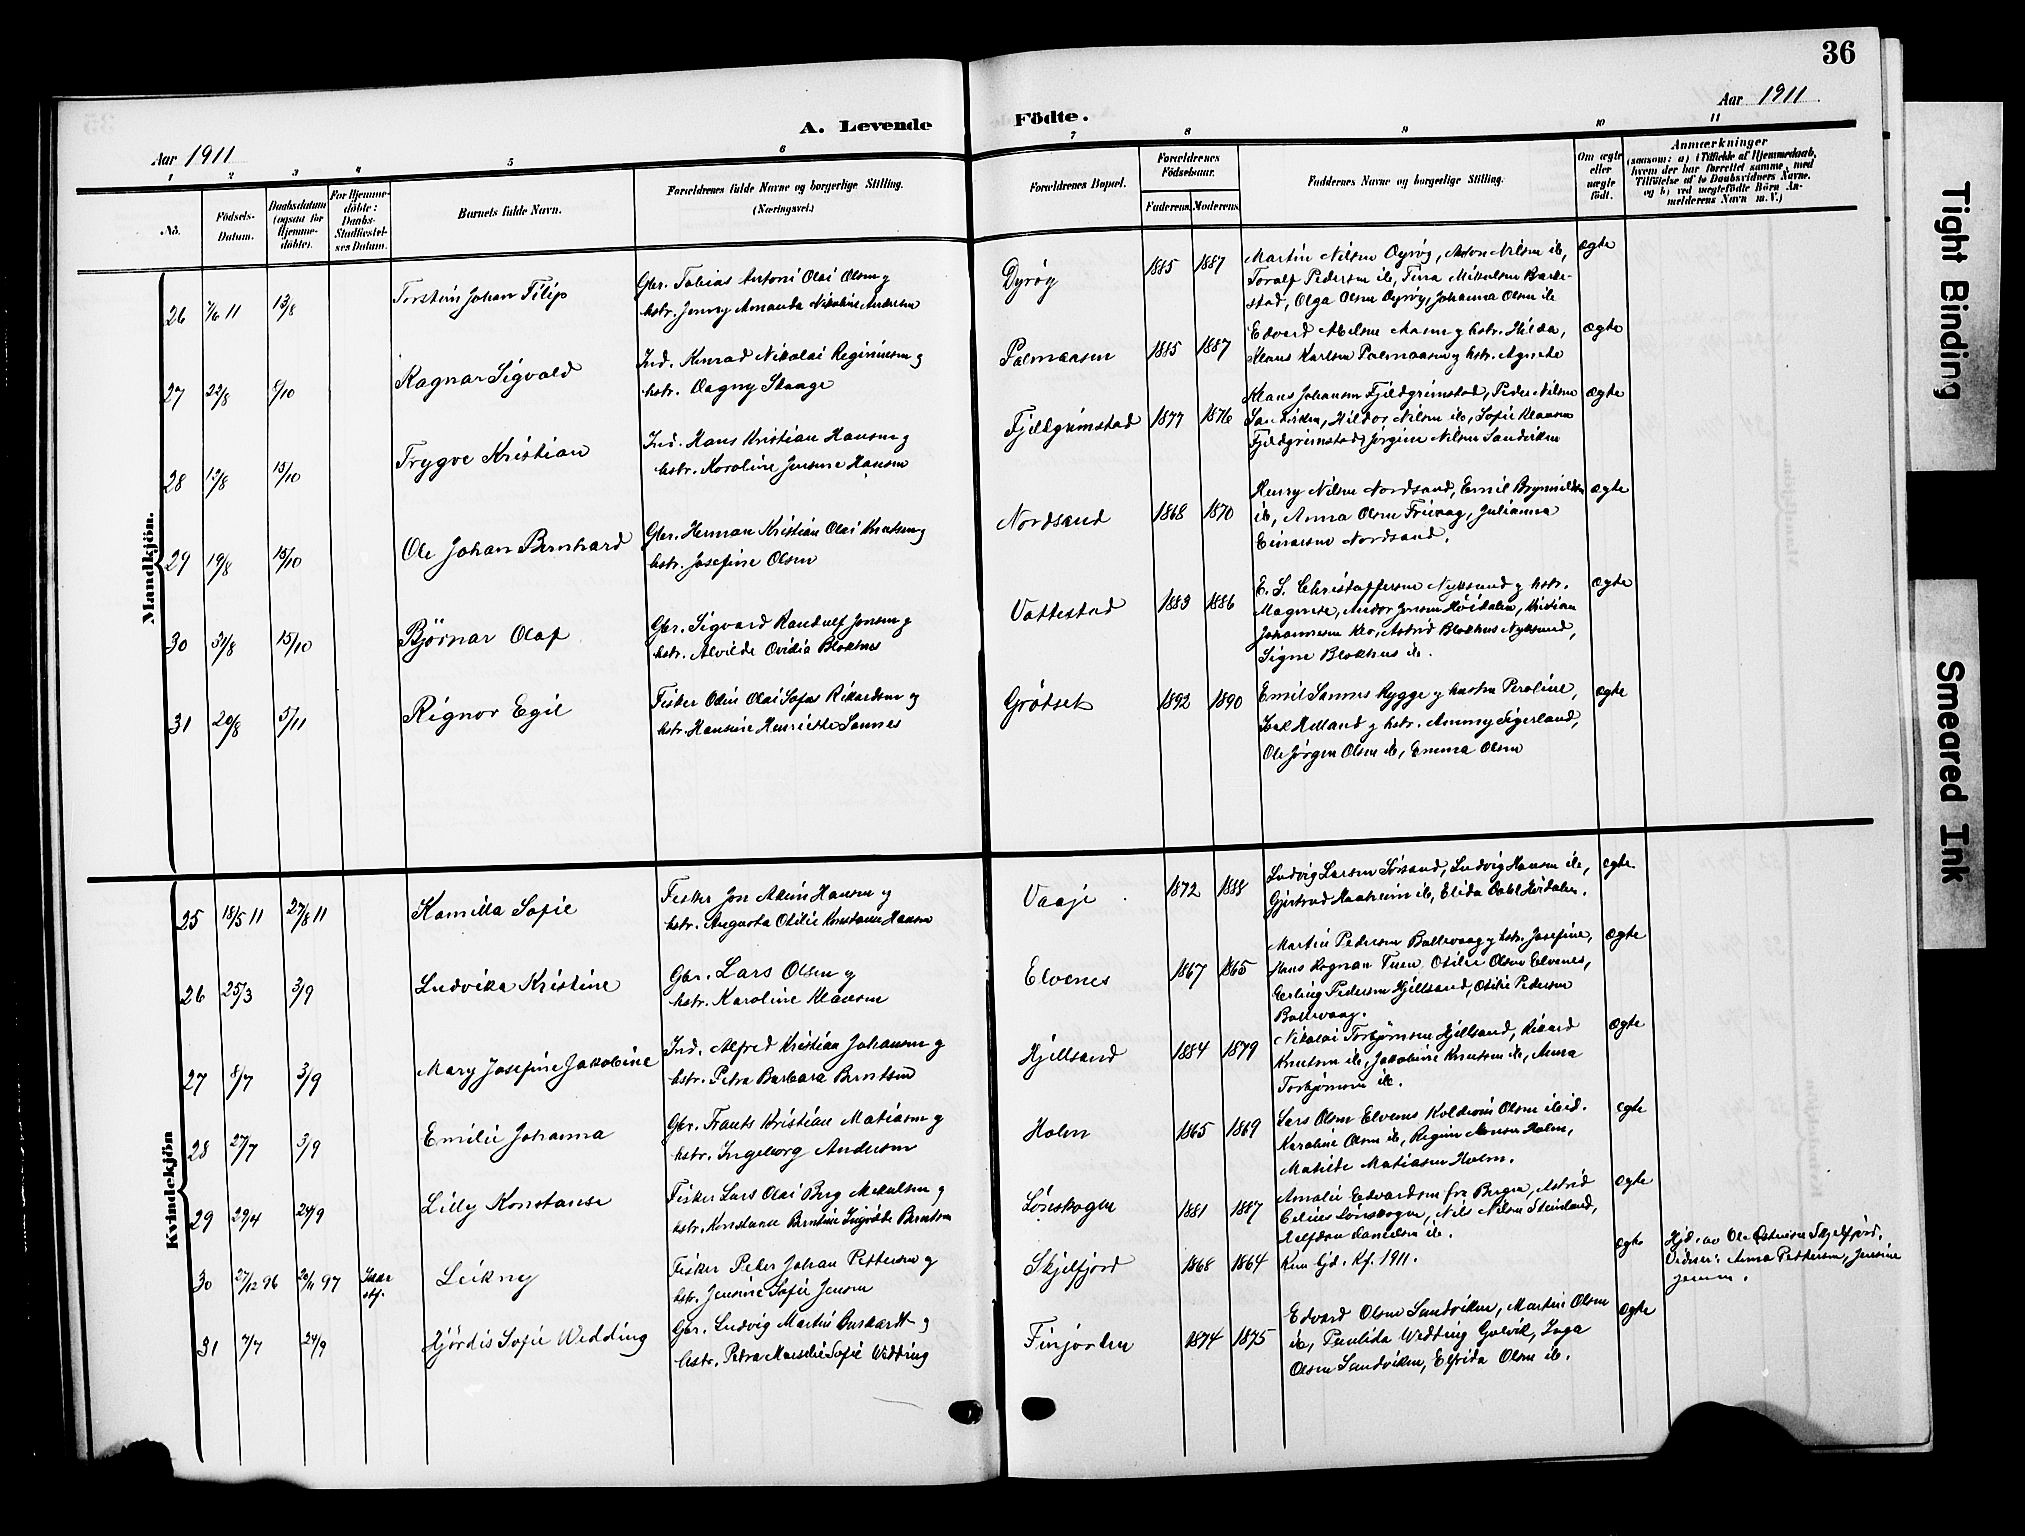 36
Aar 1911
A. Levende Födte.
Aar 1911
1 2 3 4 5 6 7 8 9 10 11
No.
Födsels-
Datum.
Daabsdatum
(ogsaa for
Hjemme-
döbte).
For Hjemme-
döbte:
Daabs-
Stadfæstel-
ses Datum.
Barnets fulde Navn.
Forældrenes fulde Navne og borgerlige Stilling.
(Næringsvei.)
Forældrenes Bopæl.
Forældrenes
Födselsaar.
Faderens. Moderens.
Faddernes Navne og borgerlige Stilling.
Om ægte
eller
uægte
født.
Anmærkninger
(saasom: a) i Tilfælde af Hjemmedaab,
hvem der har forrettet samme, med
Tilføielse af to Daabsvidners Navne,
og b) ved uægtefödte Börn An-
melderens Navn m. V.)
Mandkjön.
26 7/6 11 13/8 Torstein Johan Filip
Gbr. Tobias Antoni Olai Olsen og
hstr. Jenny Amanda Nikoline Andersen
Dyrøy 1885 1887
Martin Nilsen Dyrøy, Anton Nilsen ib,
Toralf Pedersen ib, Tina Mikalsen Barke-
stad, Olga Olsen Dyrøy, Johanna Olsen ib
ægte
27 22/8 1/10 Ragnar Sigvald
Ind. Konrad Nikolai Reginusen og
hstr. Dagny Skauge
Palmaasen 1885 1887
Edvard Nilsen Aasen og hstr. Hilda,
Klaus Karlsen Palmaasen og hstr. Agnete
ægte
28 12/8 15/10 Trygve Kristian
Ind. Hans Kristian Hansen og
hstr. Karoline Jensine Hansen
Fjeldgrimstad 1877 1876
Klaus Johansen Fjeldgrimstad, Peder Nilsen
Sandviken, Hildor Nilsen ib, Sofie Klausen
Fjeldgrimstad, Jørgine Nilsen Sandviken
ægte
29 19/8 15/10 Ole Johan Bernhard
Gbr. Herman Kristian Olai Knutsen og
hstr. Josefine Olsen
Nordsand 1868 1870
Henry Nilsen Nordsand, Emil Brynnildsen
ib, Anna Olsen Frivaag, Julianna
Einarsen Nordsand.
ægte
30 31/8 15/10 Bjørnar Olaf
Gbr. Sigvard Randulf Jensen og
hstr. Alvilde Ovidia Blokhus
Vottestad 1883 1886
E. S. Christoffersen Nyksund og hstr.
Magnise, Andor Jensen Høidalen, Kristian
Johannesen Klo, Astrid Blokhus Nyksund,
Signe Blokhus ib.
ægte
31 20/8 5/11 Rignor Egil
Fisker Odin Olai Sofus Rikardsen og
hstr. Hansine Henriette Sannes
Grødset 1892 1890
Emil Sannes Rygge og hustru Peroline,
Karl Helland og hstr. Ammy Sigerland,
Ole Jørgen Olsen ib, Emma Olsen
ægte
Kvindekjön
25 18/5 11 27/8 11 Kamilla Sofie
Fisker Jon Hansen og
hstr. Augusta Otilie Konstanse Hansen
Vaaje 1872 1888
Ludvig Larsen Sørsand, Ludvig Hansen ib,
Gjertrud Haaheim ib, Elida Dahl Høidalen.
ægte
26 25/3 3/9 Ludvika Kristine
Gbr. Lars Olsen og
hstr. Karoline Klausen
Elvenes 1867 1865
Martin Pedersen Ballevaag og hstr. Josefine,
Hans Rognan Tuen, Otilie Olsen Elvenes,
Erling Pedersen Hjellsand, Otilie Pedersen
Ballevaag.
ægte
27 8/7 3/9 Mary Josefine Jakobine
Ind. Alfred Kristian Johansen og
hstr. Petra Barbara Berntsen
Hjellsand 1884 1879
Nikolai Torbjørnsen Hjellsand, Rikard
Knutsen ib, Jakobine Knutsen ib, Anna
Torbjørnsen ib.
ægte
28 27/7 3/9 Emilie Johanna
Gbr. Frants Kristian Matiasen og
hstr. Ingeborg Andersen
Holm 1865 1869
Lars Olsen Elvenes Koldevin Olsen ibid.
Karoline Olsen ib, Regine Jensen Holm,
Matilde Matiasen Holm.
ægte
29 29/4 24/9 Lilly Konstanse
Fisker Lars Olai Berg Mikalsen og
hstr. Konstanse Berntine Ingvolda Berntsen
Lønskogen 1881 1887
Amalie Edvardsen fra Bergen, Astrid
Lønskogen, Nils Nilsen Steinland,
Halfdan Danielsen ib.
ægte
30 27/12 96 20/11 97 Ikke
stf. Leikny
Fisker Peter Johan Pettersen og
hstr. Jensine Sofie Jensen
Skjelfjord 1868 1864
Kun hjd. Kf. 1911.
ægte
Hjd. av Ole Skjelfjord.
Vidner: Anna Pettersen, Jensine
Jensen.
31 7/7 24/9 Hjørdis Sofie Wedding
Gbr. Ludvig Martin Burhardt og
hstr. Petra Marselie Sofie Wedding
Finjorden 1874 1875
Edvard Olsen Sandviken, Martin Olsen
ib, Paulida Wedding Gulvik, Inga
Olsen Sandviken, Elfrida Olsen ib.
ægte
Tight Binding
Smeared Ink